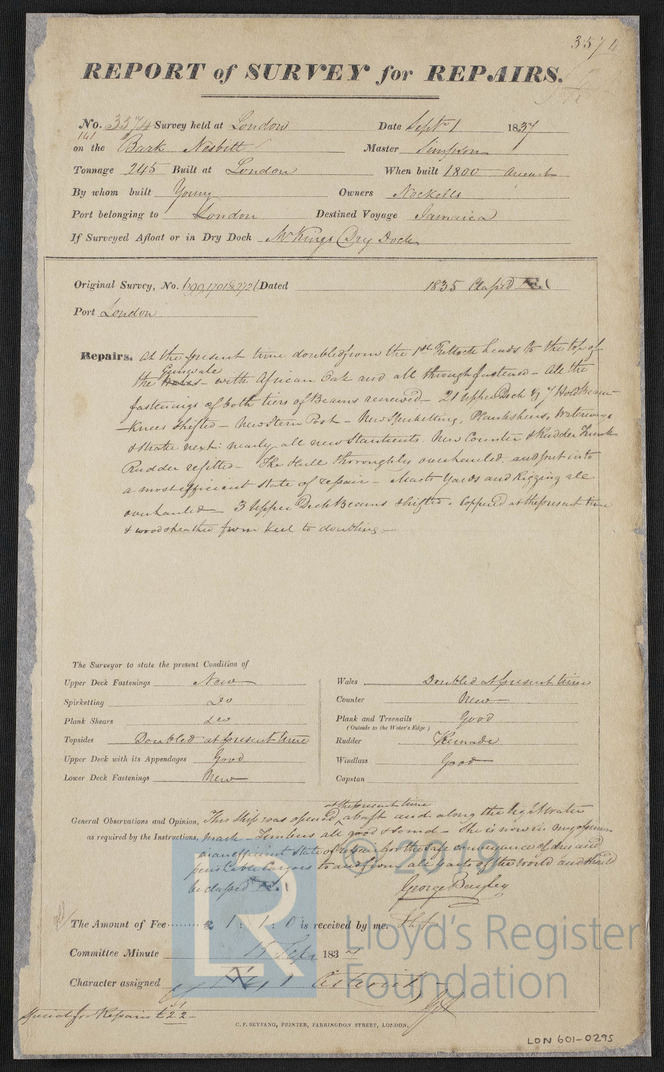 3574
REPORT of SURVEY for REPAIRS.
No. 3574 Survey held at London Date Septr 1 1837
on the Bark Nesbitt Master Simpson
Tonnage 245 Built at London When built 1800 August
By whom built Young Owners Nockells
Port belonging to London Destined Voyage Jamaica
If Surveyed Afloat or in Dry Dock Mr Kings Dry Dock
Original Survey, No. Dated 1835 Classed Æ.1
Port London
Repairs. At the present time doubled from the 1st Futtock heads to the top of
Gunwale
the with African Oak and all through fastened - All the
fastenings of both tiers of Beams renewed - 21 Upper Deck & 7 Hold Beam
Knees Shifted - New Stern Post - New Spirketting, Planksheers, Waterways
& Strake next: nearly all new Stantients New Counter & Rudder Trunk
Rudder refitted - The Hull thoroughly overhauled and put into
a most efficient state of repair - Masts Yards and Rigging all
overhauled - 3 Upper Deck Beams shifted. Coppered at the present time
& wood sheathed from keel to doubling -
The Surveyor to state the present Condition of
Upper Deck Fastenings New
Spirketting do
Plank Shears do
Topsides Doubled at present time
Upper Deck with its Appendages Good
Lower Deck Fastenings New
Wales Doubled at present time
Counter New
Plank and Treenails Good
(Outside to the Water's Edge)
Rudder Remade
Windlass Good
Capstan
General Observations and Opinion, This Ship was opened at the present time abaft and along the light water
as required by the Instructions, mark - Timbers all good & sound - She is now in my opinion
in an efficient state of repair for the safe conveyance of dry and
perishable Cargoes to and from all parts of the World and should
be classed Æ.1
George Bayley
The Amount of Fee £ 1 : 1 : 0 is received by me,
Committee Minute 15 Sepr 1837
Character assigned Æ 1
Special for Repairs £2.2-
C. F. SEYFANG, PRINTER, FARRINGDON STREET, LONDON.
LON 601-0295
© 2019
LR
Lloyd's Register
Foundation